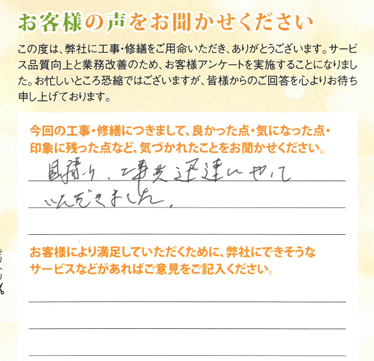 お客様の声をお聞かせください
この度は、弊社に工事・修繕をご用命いただき、ありがとうございます。サービ
ス品質向上と業務改善のため、お客様アンケートを実施することになりまし
た。お忙しいところ恐縮ではございますが、皆様からのご回答を心よりお待ち
申し上げております。
今回の工事・修繕につきまして、良かった点・気になった点・
印象に残った点など、気づかれたことをお聞かせください。
見積り、工事共迅速にやって
いただきました。
お客様により満足していただくために、弊社にできそうな
サービスなどがあればご意見をご記入ください。
キリトリ